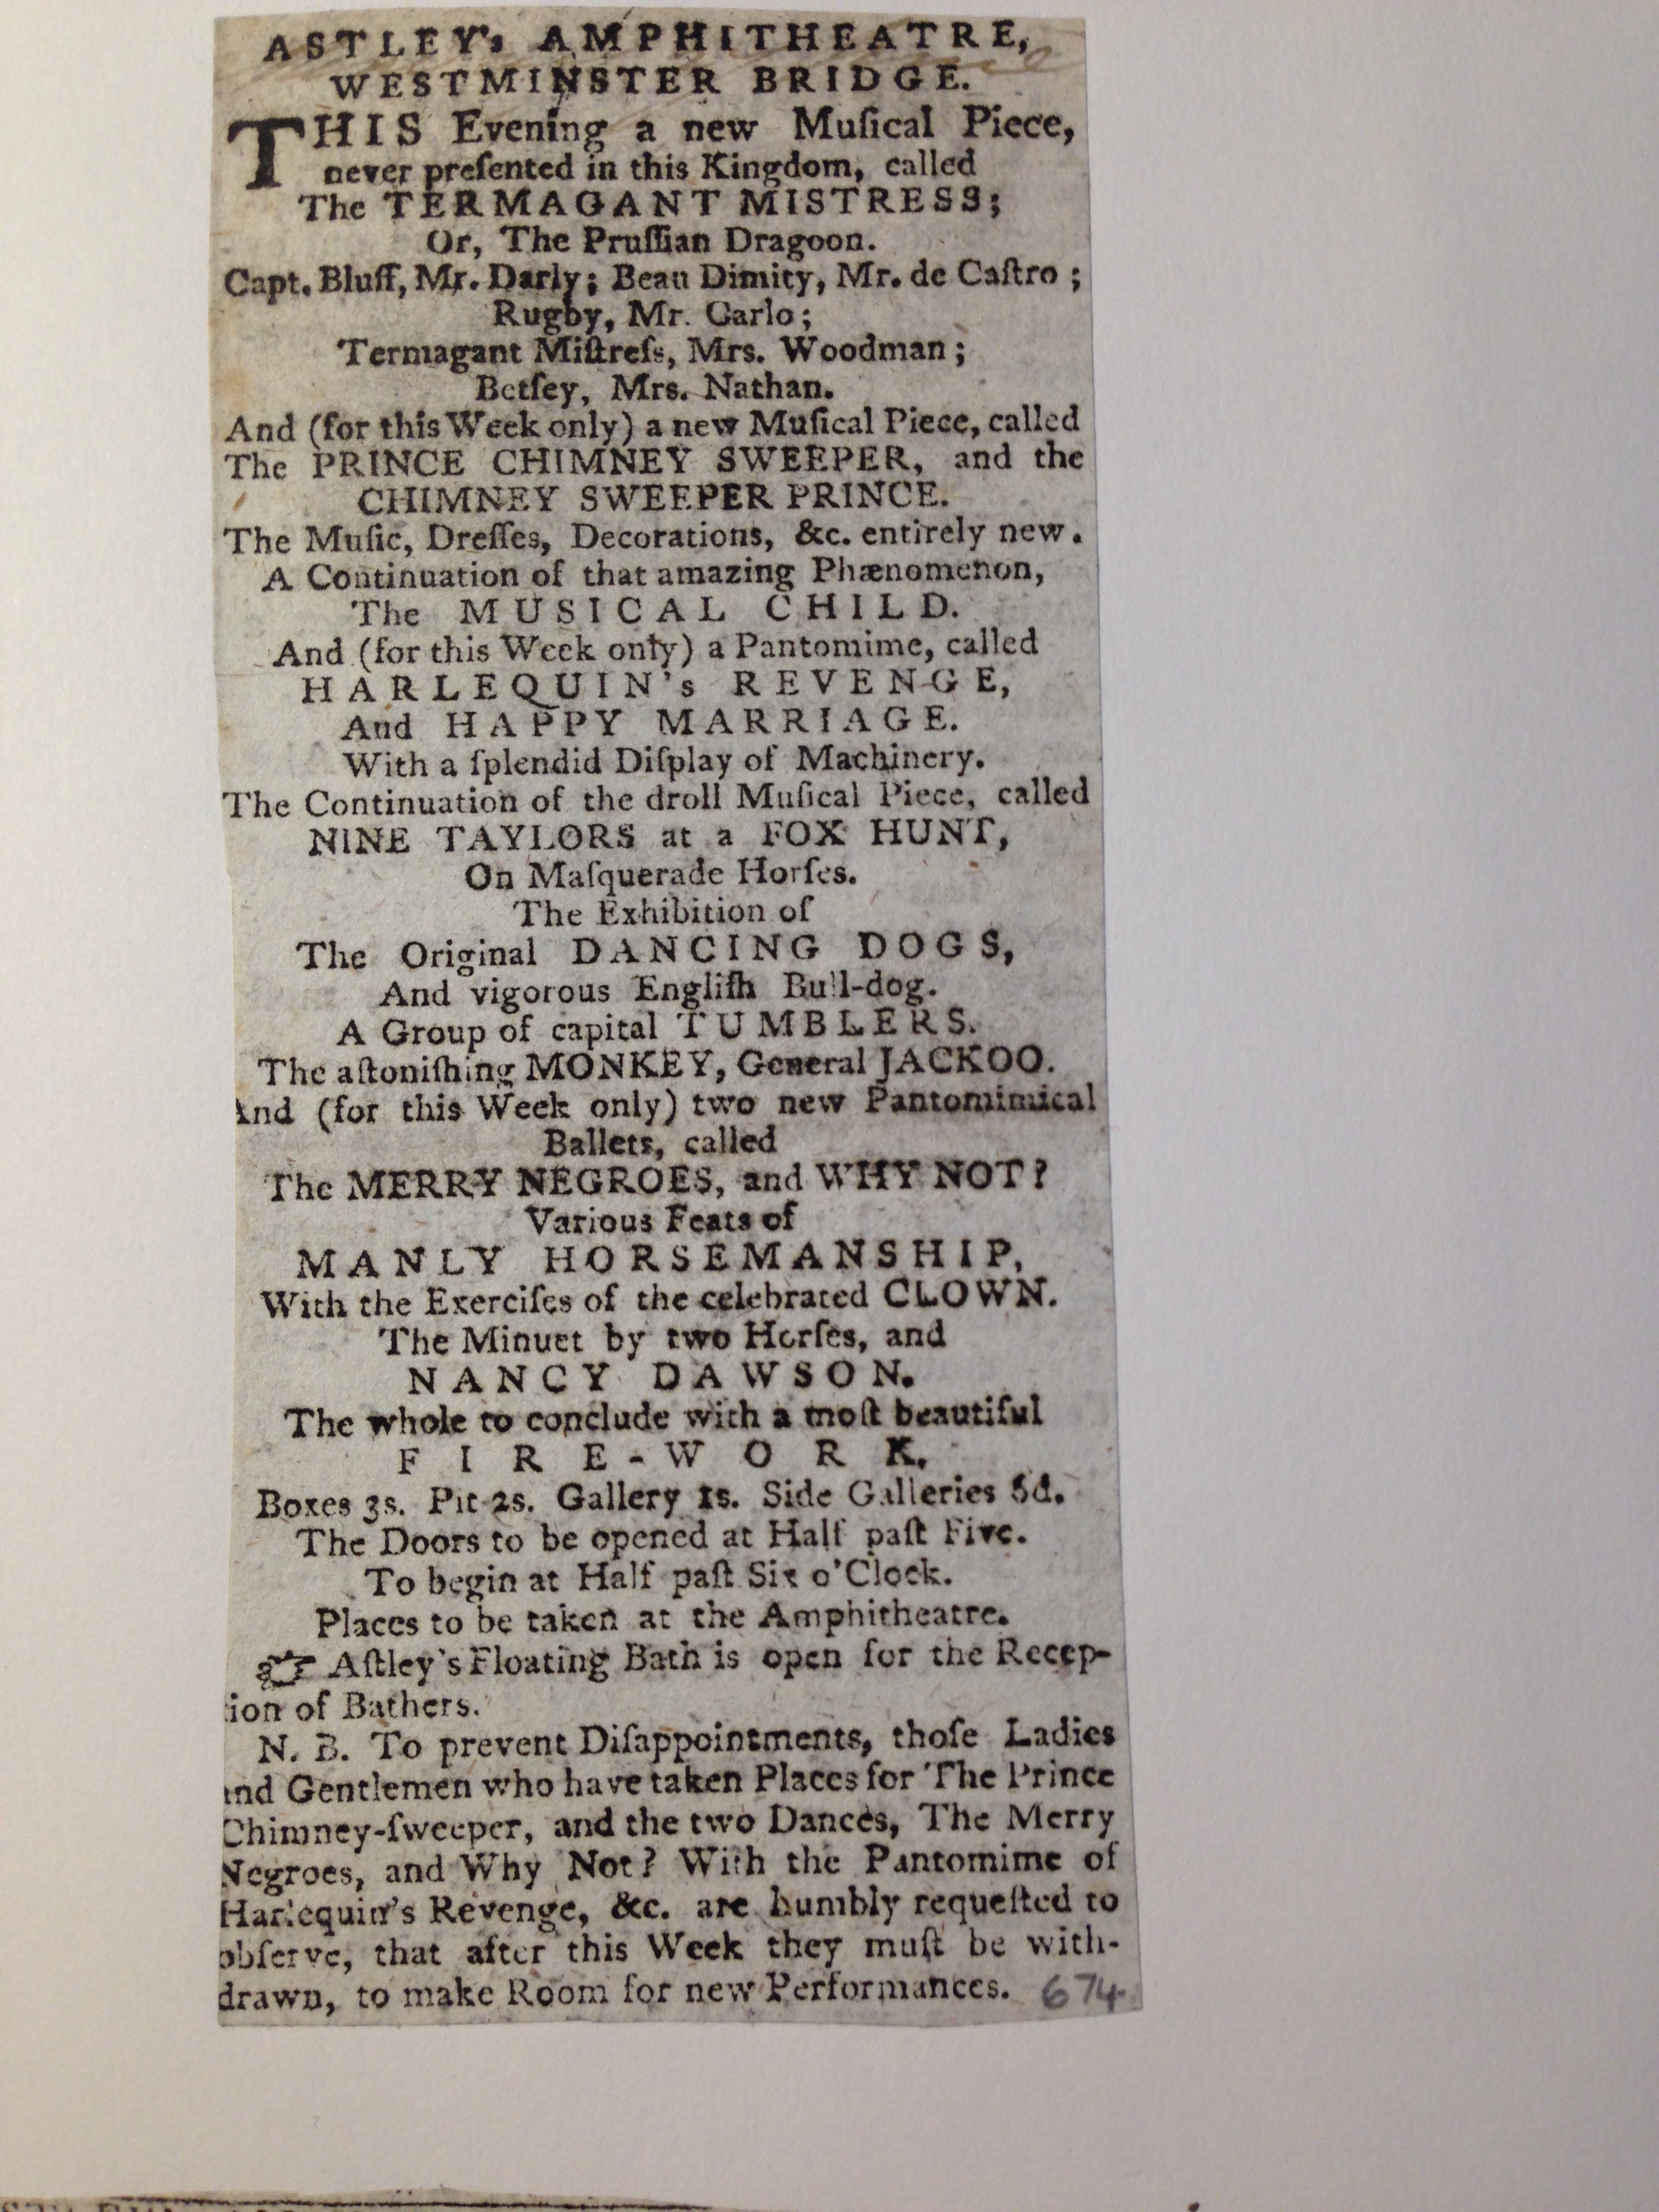 ASTLEY's AMPHITHEATRE,
WESTMINSTER BRIDGE.
THIS Evening a new Muſical Piece,
never preſented in this Kingdom, called
The TERMAGANT MISTRESS;
Or, The Pruſſian Dragoon.
Capt. Bluff, Mr. Darly; Beau Dimity, Mr. de Caſtro;
Rugby, Mr. Garlo;
Termagant Miſtreſs, Mrs. Woodman;
Betſey, Mrs. Nathan.
And (for this Week only) a new Muſical Piece, called
The PRINCE CHIMNEY SWEEPER, and the
CHIMNEY SWEEPER PRINCE.
The Muſic, Dreſſes, Decorations, &c. entirely new.
A Continuation of that amazing Phænomenon,
The MUSICAL CHILD.
And (for this Week only) a Pantomime, called
HARLEQUIN's REVENGE,
And HAPPY MARRIAGE.
With a ſplendid Diſplay of Machinery.
The Continuation of the droll Muſical Piece, called
NINE TAYLORS at a FOX HUNT,
On Maſquerade Horſes.
The Exhibition of
The Original DANCING DOGS,
And vigorous Engliſh Bull-dog.
A Group of capital TUMBLERS.
The aſtoniſhing MONKEY, General JACKOO.
And (for this Week only) two new Pantomimical
Ballets, called
The MERRY NEGROES, and WHY NOT?
Various Feats of
MANLY HORSEMANSHIP,
With the Exerciſes of the celebrated CLOWN.
The Minuet by two Horſes, and
NANCY DAWSON.
The whole to conclude with a moſt beautiful
FIRE-WORK.
Boxes 3s. Pit 2s. Gallery 1s. Side Galleries 6d.
The Doors to be opened at Half paſt Five.
To begin at Half paſt Six o'Clock.
Places to be taken at the Amphitheatre.
☞ Aſtley's Floating Bath is open for the Recep-
tion of Bathers.
N. B. To prevent Diſappointments, thoſe Ladies
and Gentlemen who have taken Places for The Prince
Chimney-ſweeper, and the two Dances, The Merry
Negroes, and Why Not? With the Pantomime of
Harlequin's Revenge, &c. are humbly requeſted to
obſerve, that after this Week they muſt be with-
drawn, to make Room for new Performances. 674